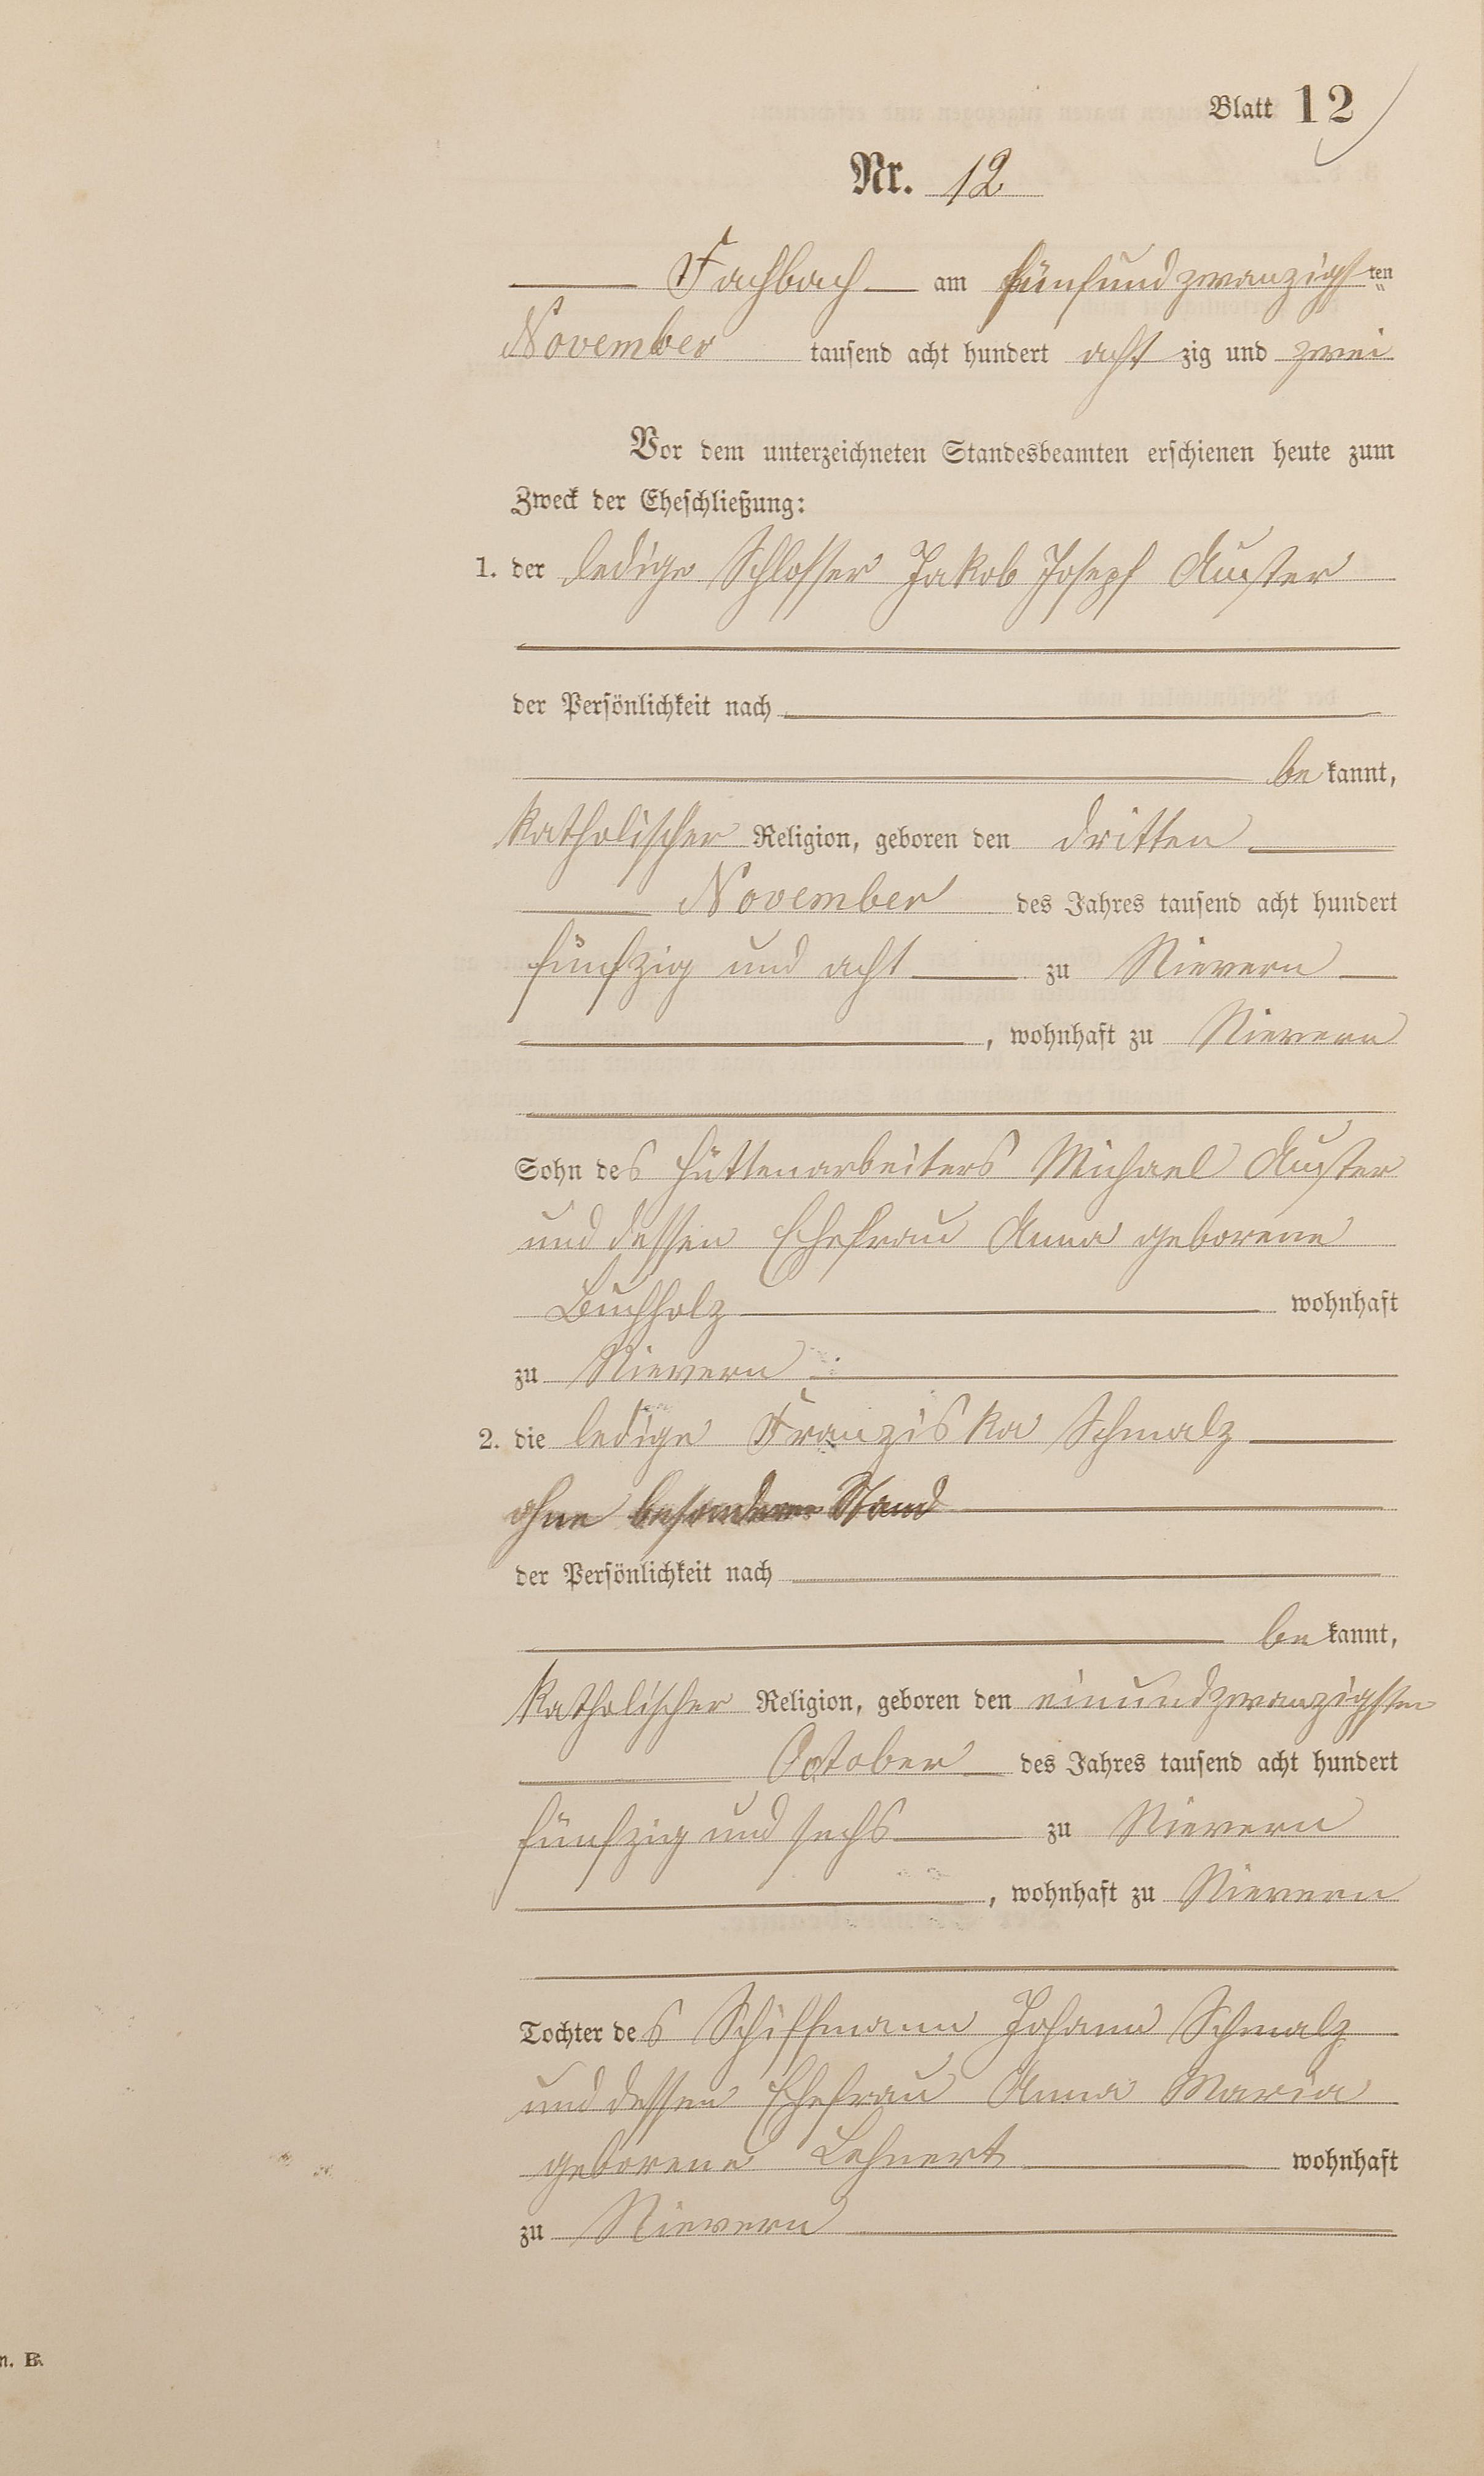 Blatt 12
Nr. 12
Fachbach am fünfundzwanzigsten
November tausend acht hundert acht zig und zwei
Vor dem unterzeichneten Standesbeamten erschienen heute zum
Zweck der Eheschließung:
1. der ledige Schlosser Jakob Joseph Auster
der Persönlichkeit nach
be kannt,
katholischer Religion, geboren den dritten
November des Jahres tausend acht hundert
fünfzig und acht zu Nievern
, wohnhaft zu Nievern
Sohn des Hüttenarbeiters Michael Auster
und dessen Ehefrau Anna geborene
Buchholz wohnhaft
zu Nievern
2. die ledige Franziska Schmalz
ohne besonderen Stand
der Persönlichkeit nach
be kannt,
katholischer Religion, geboren den einundzwanzigsten
October des Jahres tausend acht hundert
fünfzig und sechs zu Nievern
, wohnhaft zu Nievern
Tochter des Schiffmann Johann Schmalz
und dessen Ehefrau Anna Maria
geborene Lehnert wohnhaft
zu Nievern
B.